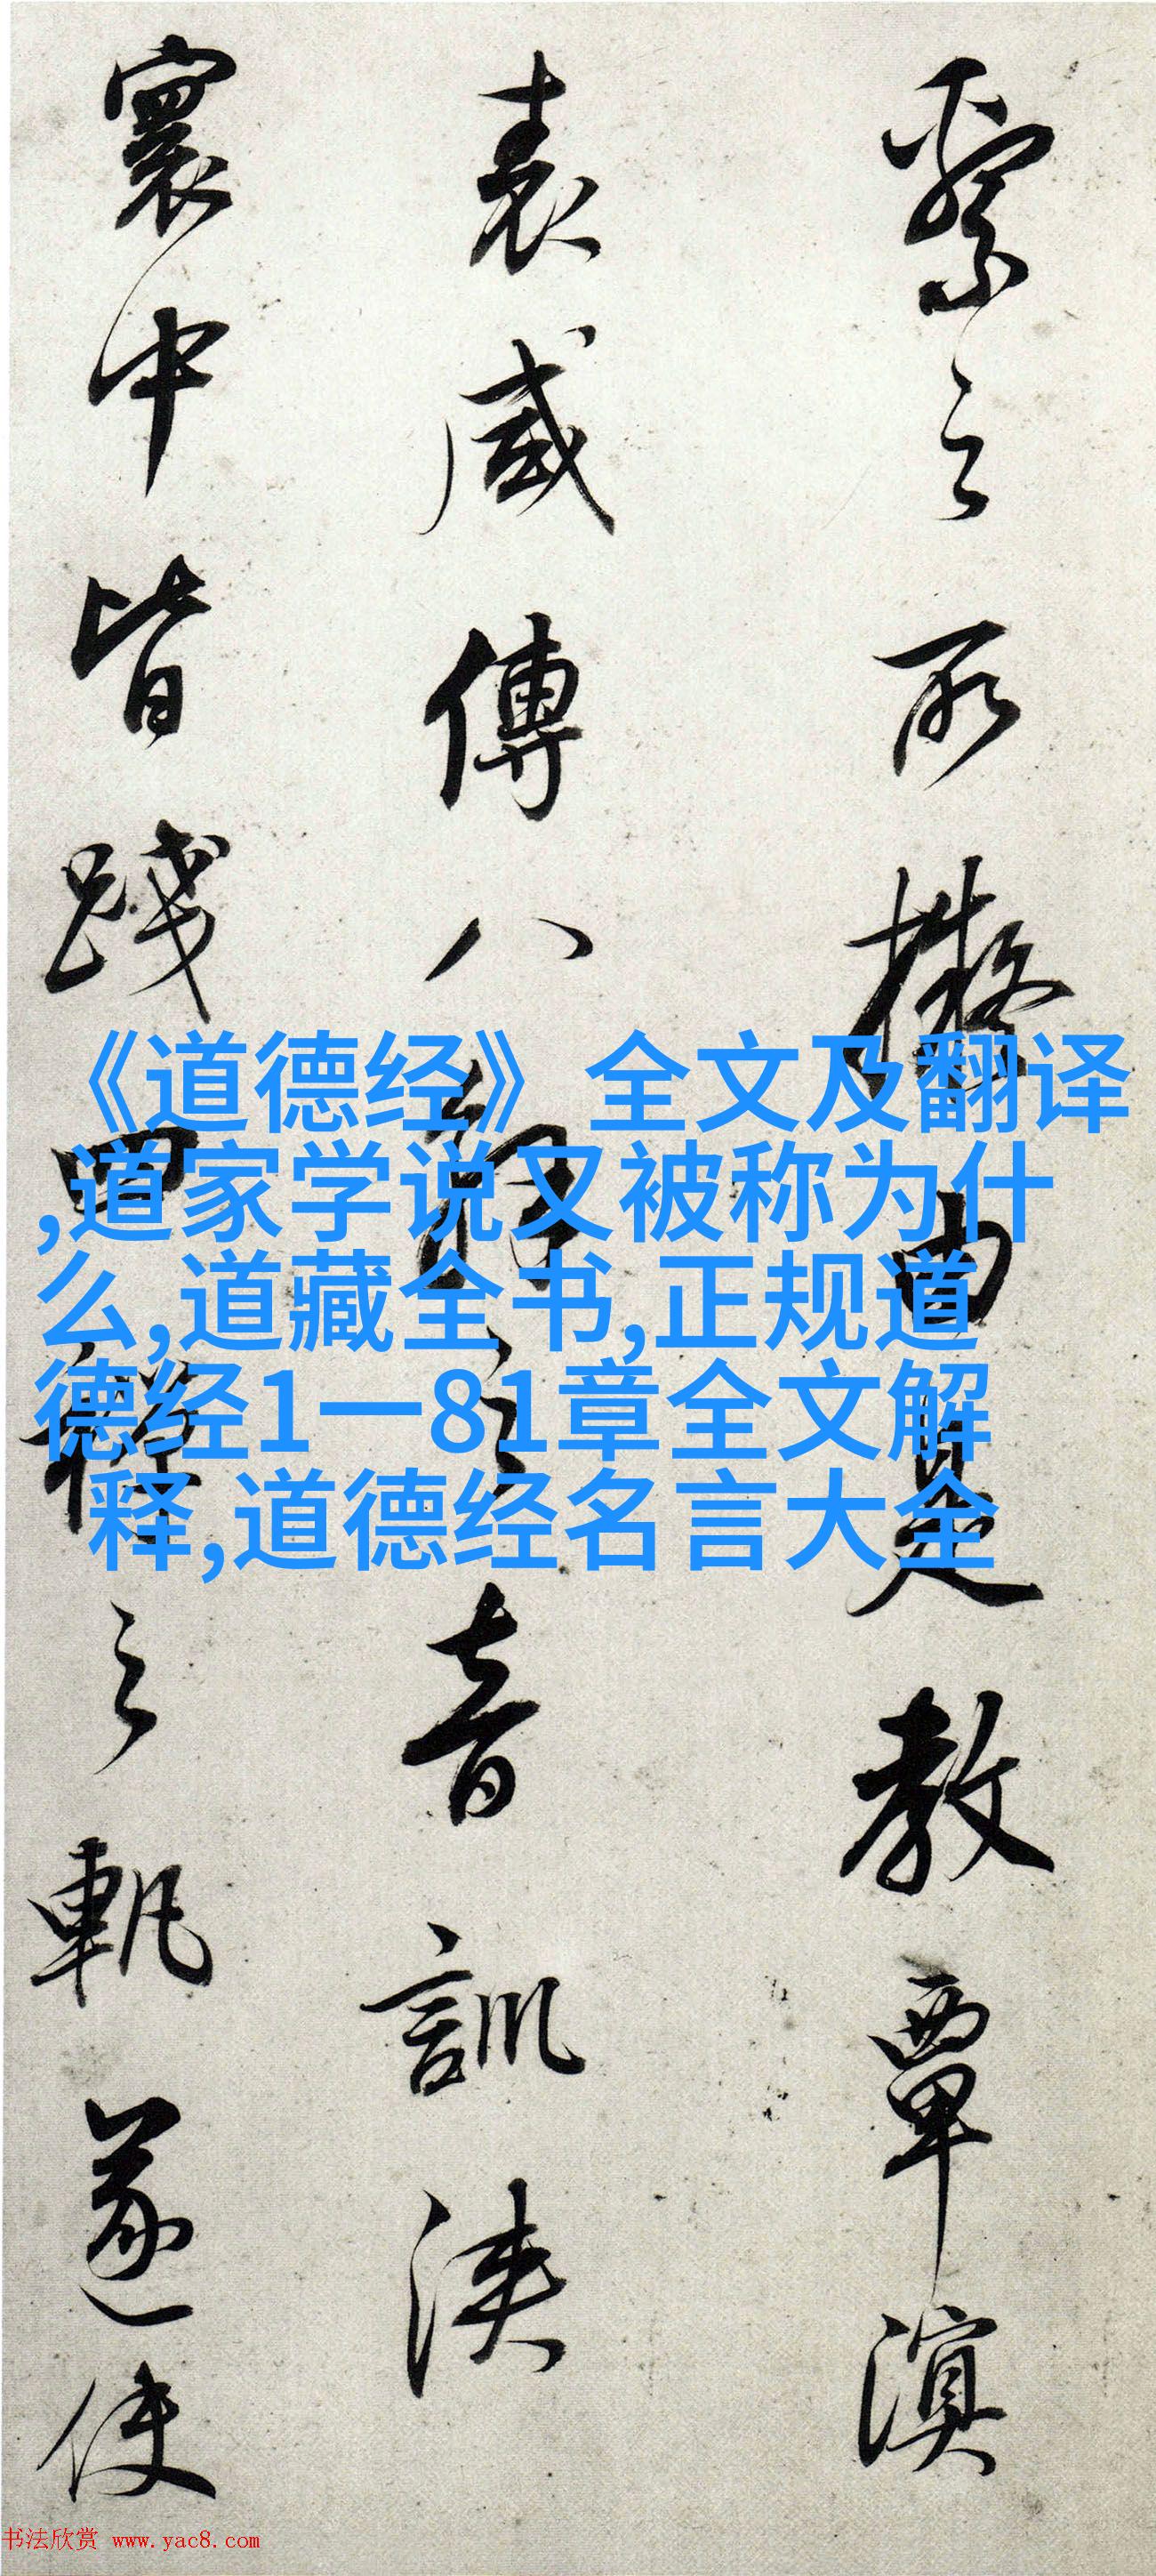 繄之所擬由是教覃溟
表咸傳八解之音訓浹
寰中皆踐四禪之軌遂使
《道德经》全文及翻译
,道家学说又被称为什
么,道藏全书,正规道
德经1一81章全文解
释,道德经名言大全
书法欣赏 www.yac8.com